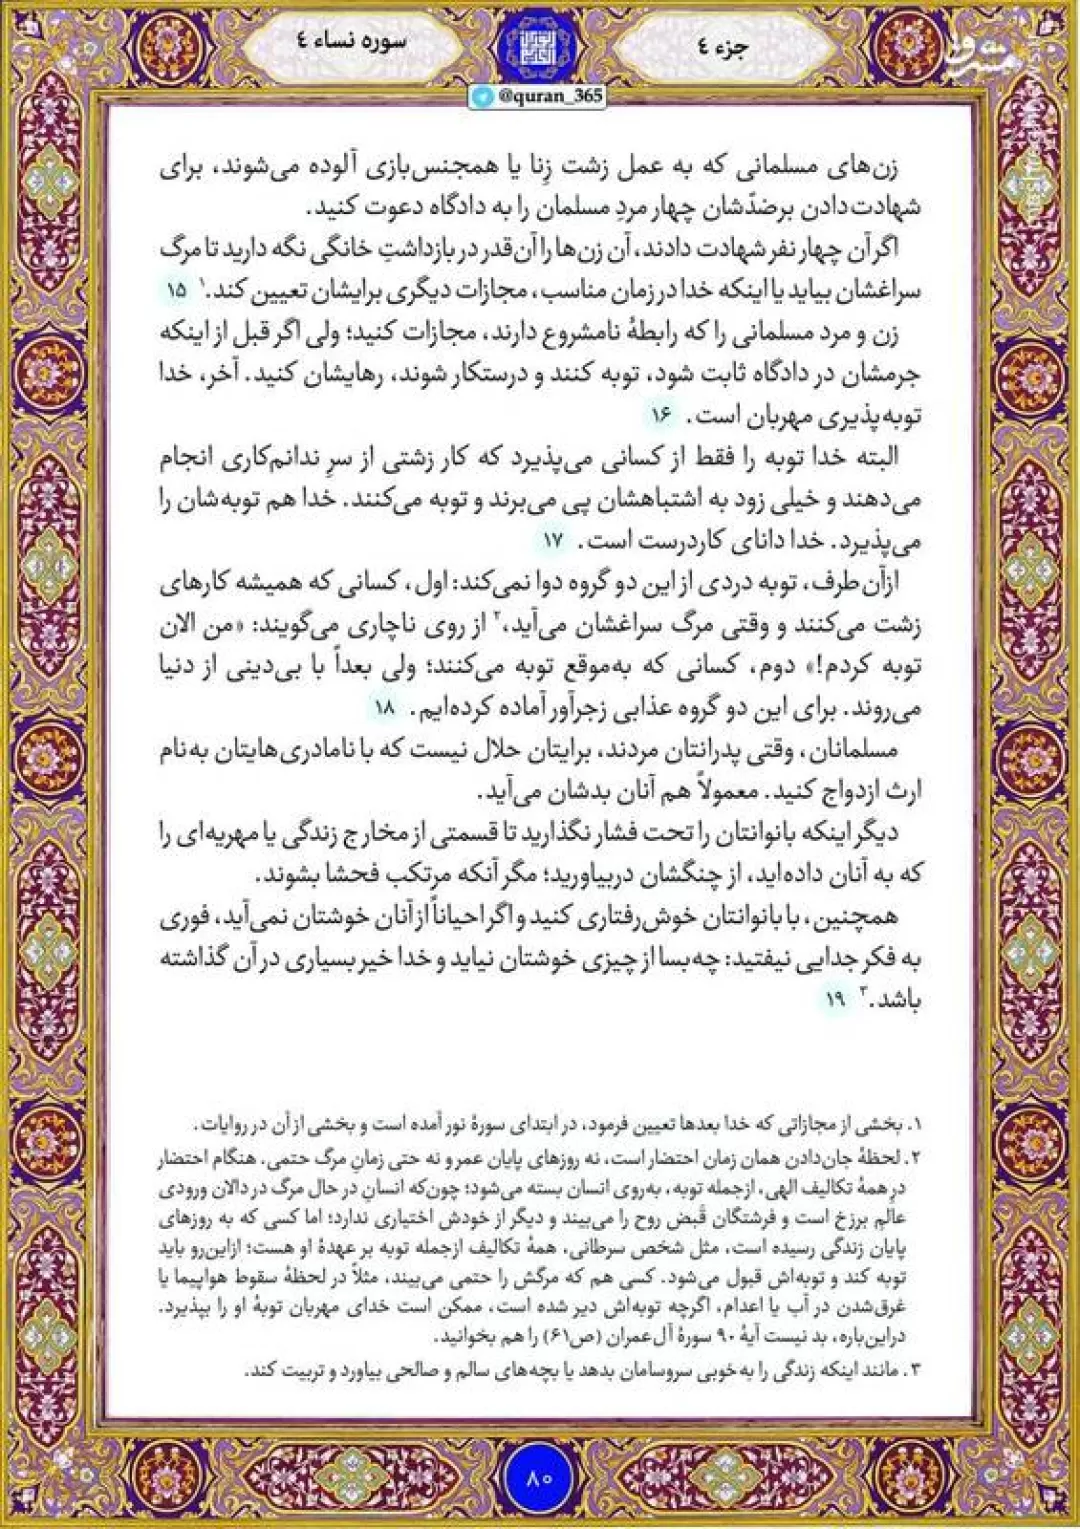 جزء ٤
سوره نساء ٤
مشرق
@quran_365
زن‌های مسلمانی که به عمل زشت زِنا یا همجنس‌بازی آلوده می‌شوند، برای
شهادت‌دادن برضدّشان چهار مردِ مسلمان را به دادگاه دعوت کنید.
اگر آن چهار نفر شهادت دادند، آن زن‌ها را آن‌قدر در بازداشتِ خانگی نگه دارید تا مرگ
سراغشان بیاید یا اینکه خدا در زمان مناسب، مجازات دیگری برایشان تعیین کند.۱ ۱۵
زن و مرد مسلمانی را که رابطهٔ نامشروع دارند، مجازات کنید؛ ولی اگر قبل از اینکه
جرمشان در دادگاه ثابت شود، توبه کنند و درستکار شوند، رهایشان کنید. آخر، خدا
توبه‌پذیری مهربان است. ۱۶
البته خدا توبه را فقط از کسانی می‌پذیرد که کار زشتی از سرِ ندانم‌کاری انجام
می‌دهند و خیلی زود به اشتباهشان پی می‌برند و توبه می‌کنند. خدا هم توبه‌شان را
می‌پذیرد. خدا دانای کاردرست است. ۱۷
ازآن‌طرف، توبه دردی از این دو گروه دوا نمی‌کند: اول، کسانی که همیشه کارهای
زشت می‌کنند و وقتی مرگ سراغشان می‌آید،۲ از روی ناچاری می‌گویند: «من الان
توبه کردم!» دوم، کسانی که به‌موقع توبه می‌کنند؛ ولی بعداً با بی‌دینی از دنیا
می‌روند. برای این دو گروه عذابی زجرآور آماده کرده‌ایم. ۱۸
مسلمانان، وقتی پدرانتان مردند، برایتان حلال نیست که با نامادری‌هایتان به‌نام
ارث ازدواج کنید. معمولاً هم آنان بدشان می‌آید.
دیگر اینکه بانوانتان را تحت فشار نگذارید تا قسمتی از مخارج زندگی یا مهریه‌ای را
که به آنان داده‌اید، از چنگشان دربیاورید؛ مگر آنکه مرتکب فحشا بشوند.
همچنین، با بانوانتان خوش‌رفتاری کنید و اگر احیاناً از آنان خوشتان نمی‌آید، فوری
به فکر جدایی نیفتید: چه‌بسا از چیزی خوشتان نیاید و خدا خیر بسیاری در آن گذاشته
باشد.۳ ۱۹
۱. بخشی از مجازاتی که خدا بعدها تعیین فرمود، در ابتدای سورهٔ نور آمده است و بخشی از آن در روایات.
۲. لحظهٔ جان‌دادن همان زمان احتضار است، نه روزهای پایان عمر و نه حتی زمانِ مرگ حتمی. هنگام احتضار
درِ همهٔ تکالیف الهی، ازجمله توبه، به‌روی انسان بسته می‌شود؛ چون‌که انسانِ در حال مرگ در دالان ورودی
عالم برزخ است و فرشتگان قَبض روح را می‌بیند و دیگر از خودش اختیاری ندارد؛ اما کسی که به روزهای
پایان زندگی رسیده است، مثل شخص سرطانی، همهٔ تکالیف ازجمله توبه بر عهدهٔ او هست؛ ازاین‌رو باید
توبه کند و توبه‌اش قبول می‌شود. کسی هم که مرگش را حتمی می‌بیند، مثلاً در لحظهٔ سقوط هواپیما یا
غرق‌شدن در آب یا اعدام، اگرچه توبه‌اش دیر شده است، ممکن است خدای مهربان توبهٔ او را بپذیرد.
دراین‌باره، بد نیست آیهٔ ۹۰ سورهٔ آل‌عمران (ص۶۱) را هم بخوانید.
۳. مانند اینکه زندگی را به‌خوبی سروسامان بدهد یا بچه‌های سالم و صالحی بیاورد و تربیت کند.
۸۰